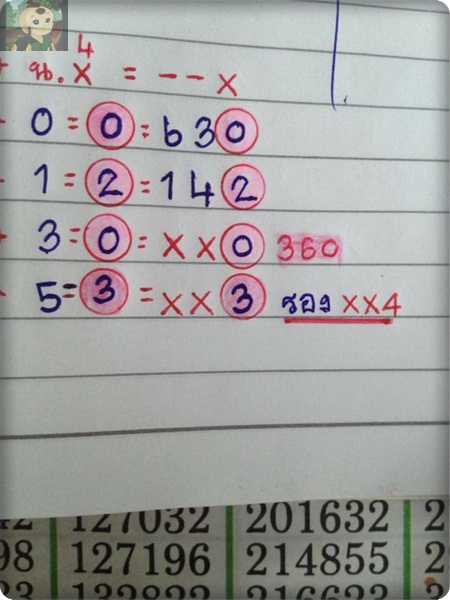 4
น.x = -- x
0 = 0 = 630
1 = 2 = 142
3 = 0 = xx0 360
5 = 3 = xx3 รอง xx4
127032 201632 2
98 127196 214855 2